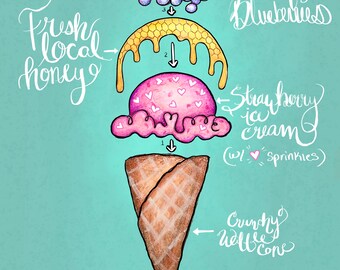 Blueberries
3
Fresh
local
honey
2
Strawberry
ice
cream
(w/ sprinkles)
1
Crunchy
Waffle
Cone